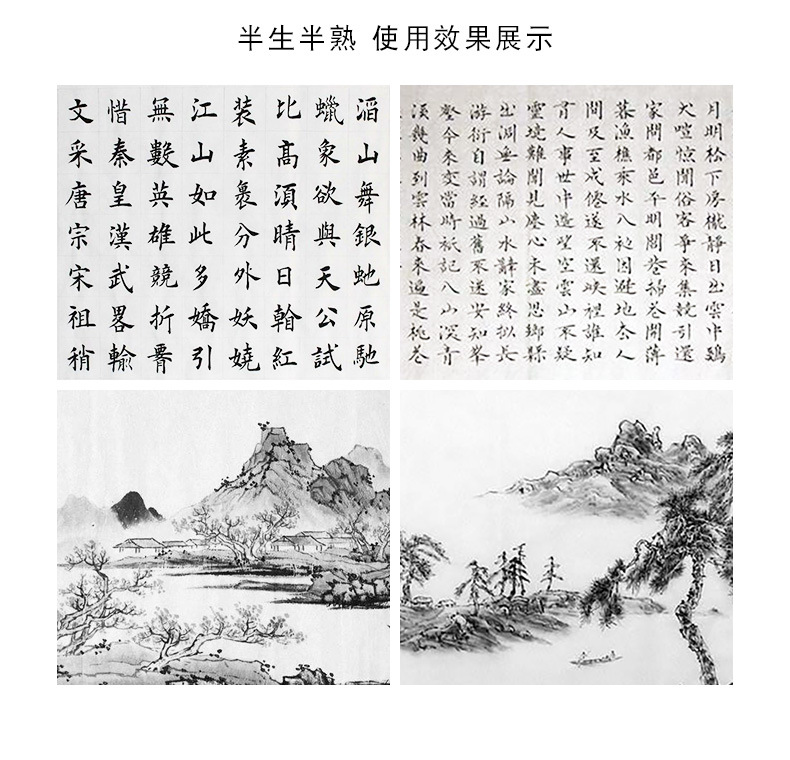 半生半熟 使用效果展示
滔山舞銀虵原馳
蠟象欲與天公試
比高湏晴日翰紅
装素裹分外妖嬈
江山如此多嬌引
無數英雄競折
惜秦皇漢武畧輸
文采唐宗宋祖稍
月明松下房櫳靜日出雲中鷄
犬喧惊聞俗客爭來集競引還
家問都邑平明閭巷掃花開薄
暮漁樵乘水入初因避地去人
間及至成僊遂不還峽裡誰知
有人事世中遥望空雲山不疑
靈境難聞見塵心未盡思鄉縣
出洞無論隔山水辭家終拟長
游衍自謂經過舊不迷安知峯
壑今來變當時祇記入山深青
溪幾曲到雲林春來遍是桃花